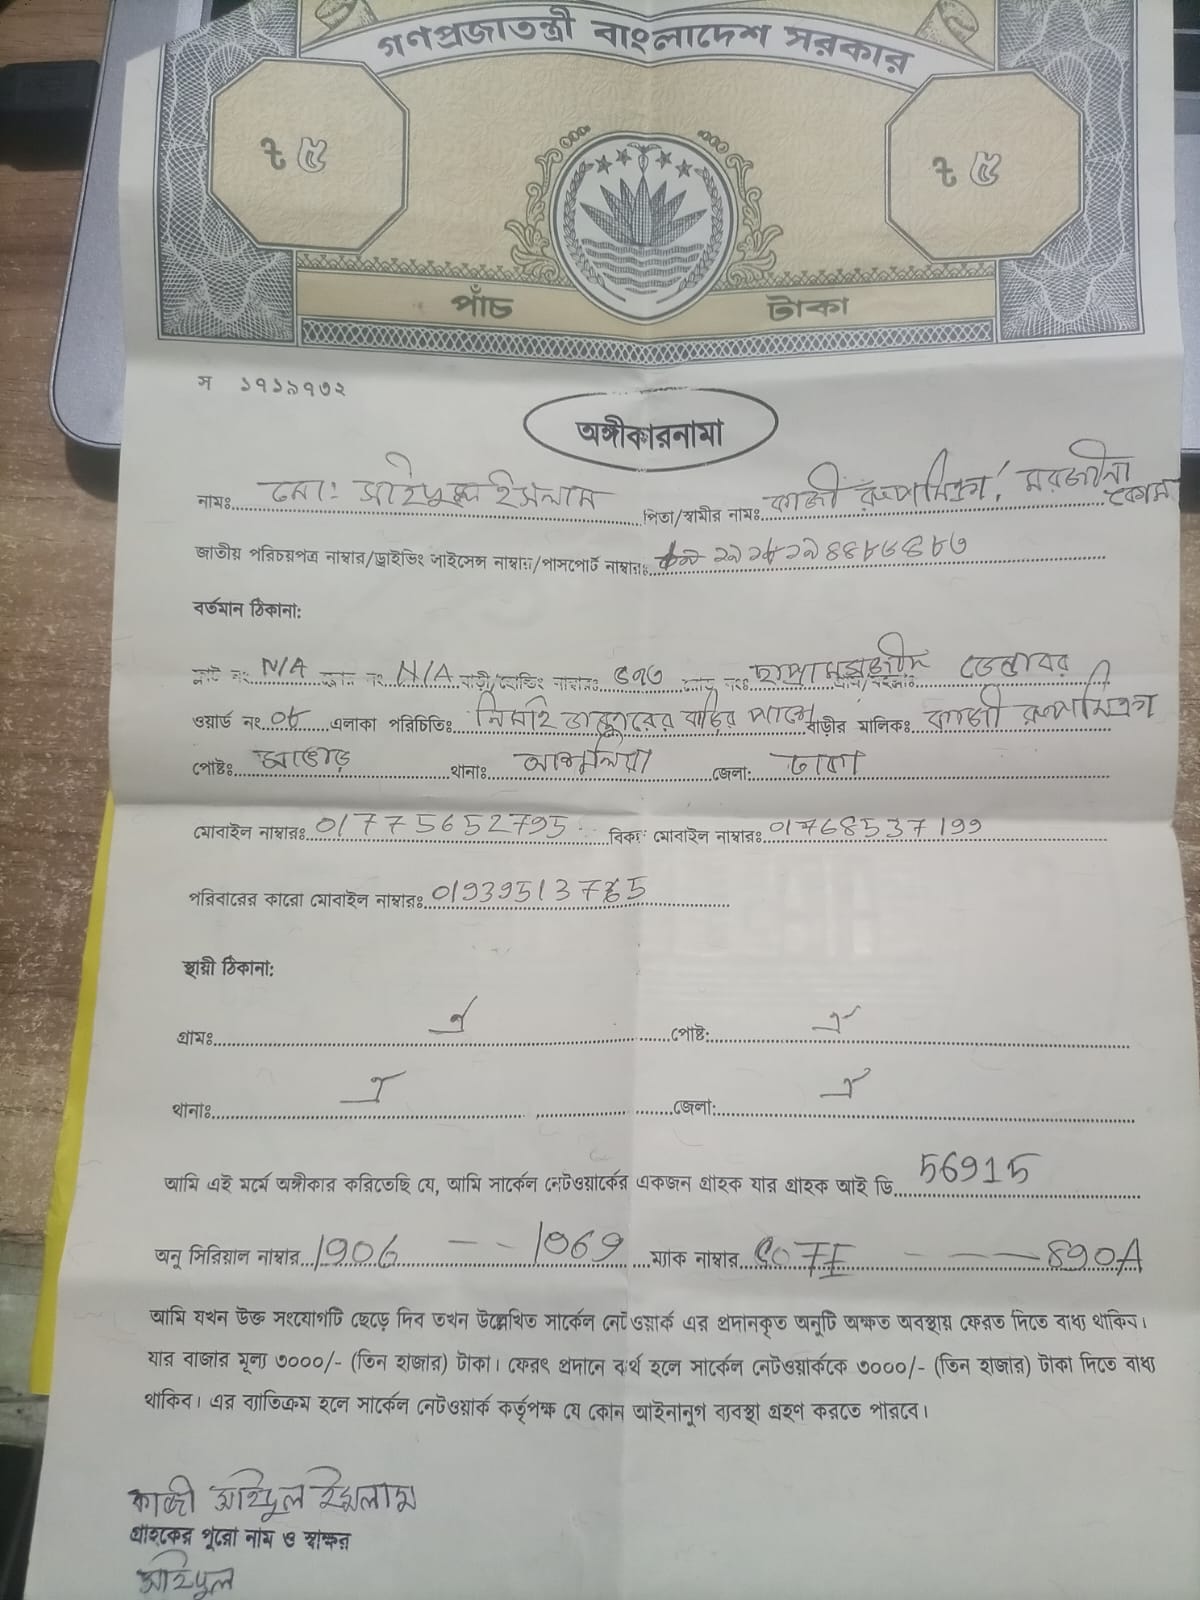 গণপ্রজাতন্ত্রী বাংলাদেশ সরকার
৳ ৫ ৳ ৫
পাঁচ টাকা
স ১৭১৯৭৩২
অঙ্গীকারনামা
নামঃ মোঃ সাইদুল ইসলাম পিতা/স্বামীর নামঃ কাজী
জাতীয় পরিচয়পত্র নাম্বার/ড্রাইভিং লাইসেন্স নাম্বার/পাসপোর্ট নাম্বারঃ
বর্তমান ঠিকানা:
N/A N/A বাড়ী/হোল্ডিং নাম্বারঃ
ওয়ার্ড নং ০৮ এলাকা পরিচিতিঃ নিমাই ডাক্তারের বাড়ির পাশে বাড়ীর মালিকঃ কাজী
পোষ্টঃ থানাঃ আশুলিয়া জেলা: ঢাকা
মোবাইল নাম্বারঃ 017775652795 বিকঃ মোবাইল নাম্বারঃ 01768537199
পরিবারের কারো মোবাইল নাম্বারঃ
স্থায়ী ঠিকানা:
গ্রামঃ ঐ পোষ্ট: ঐ
থানাঃ ঐ জেলা: ঐ
আমি এই মর্মে অঙ্গীকার করিতেছি যে, আমি সার্কেল নেটওয়ার্কের একজন গ্রাহক যার গ্রাহক আই ডি 56915
অনু সিরিয়াল নাম্বার 1906 -- 1069 ম্যাক নাম্বার --- 890A
আমি যখন উক্ত সংযোগটি ছেড়ে দিব তখন উল্লেখিত সার্কেল নেটওয়ার্ক এর প্রদানকৃত অনুটি অক্ষত অবস্থায় ফেরত দিতে বাধ্য থাকিব।
যার বাজার মূল্য ৩০০০/- (তিন হাজার) টাকা। ফেরৎ প্রদানে ব্যর্থ হলে সার্কেল নেটওয়ার্ককে ৩০০০/- (তিন হাজার) টাকা দিতে বাধ্য
থাকিব। এর ব্যাতিক্রম হলে সার্কেল নেটওয়ার্ক কর্তৃপক্ষ যে কোন আইনানুগ ব্যবস্থা গ্রহণ করতে পারবে।
কাজী সাইদুল ইসলাম
গ্রাহকের পুরো নাম ও স্বাক্ষর
সাইদুল